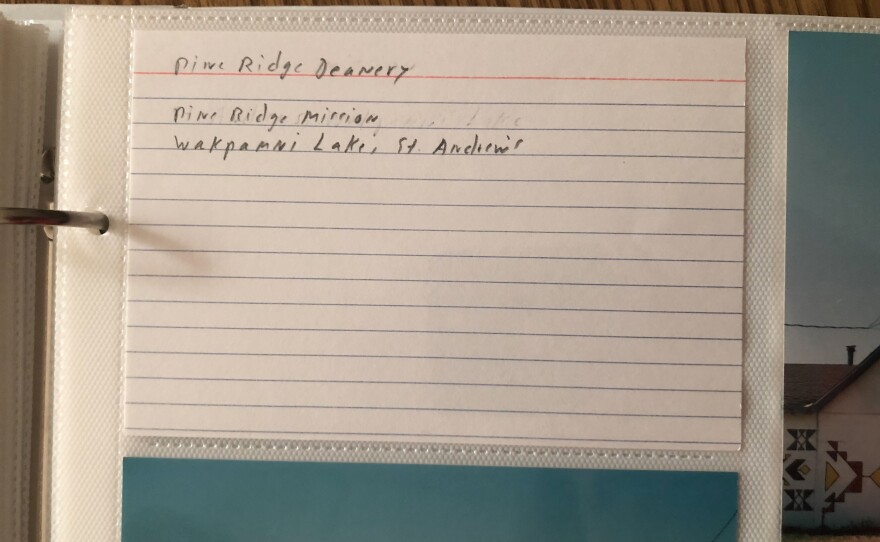 Pine Ridge Deanery
Pine Ridge Mission
Wakpamni Lake, St. Andrew's